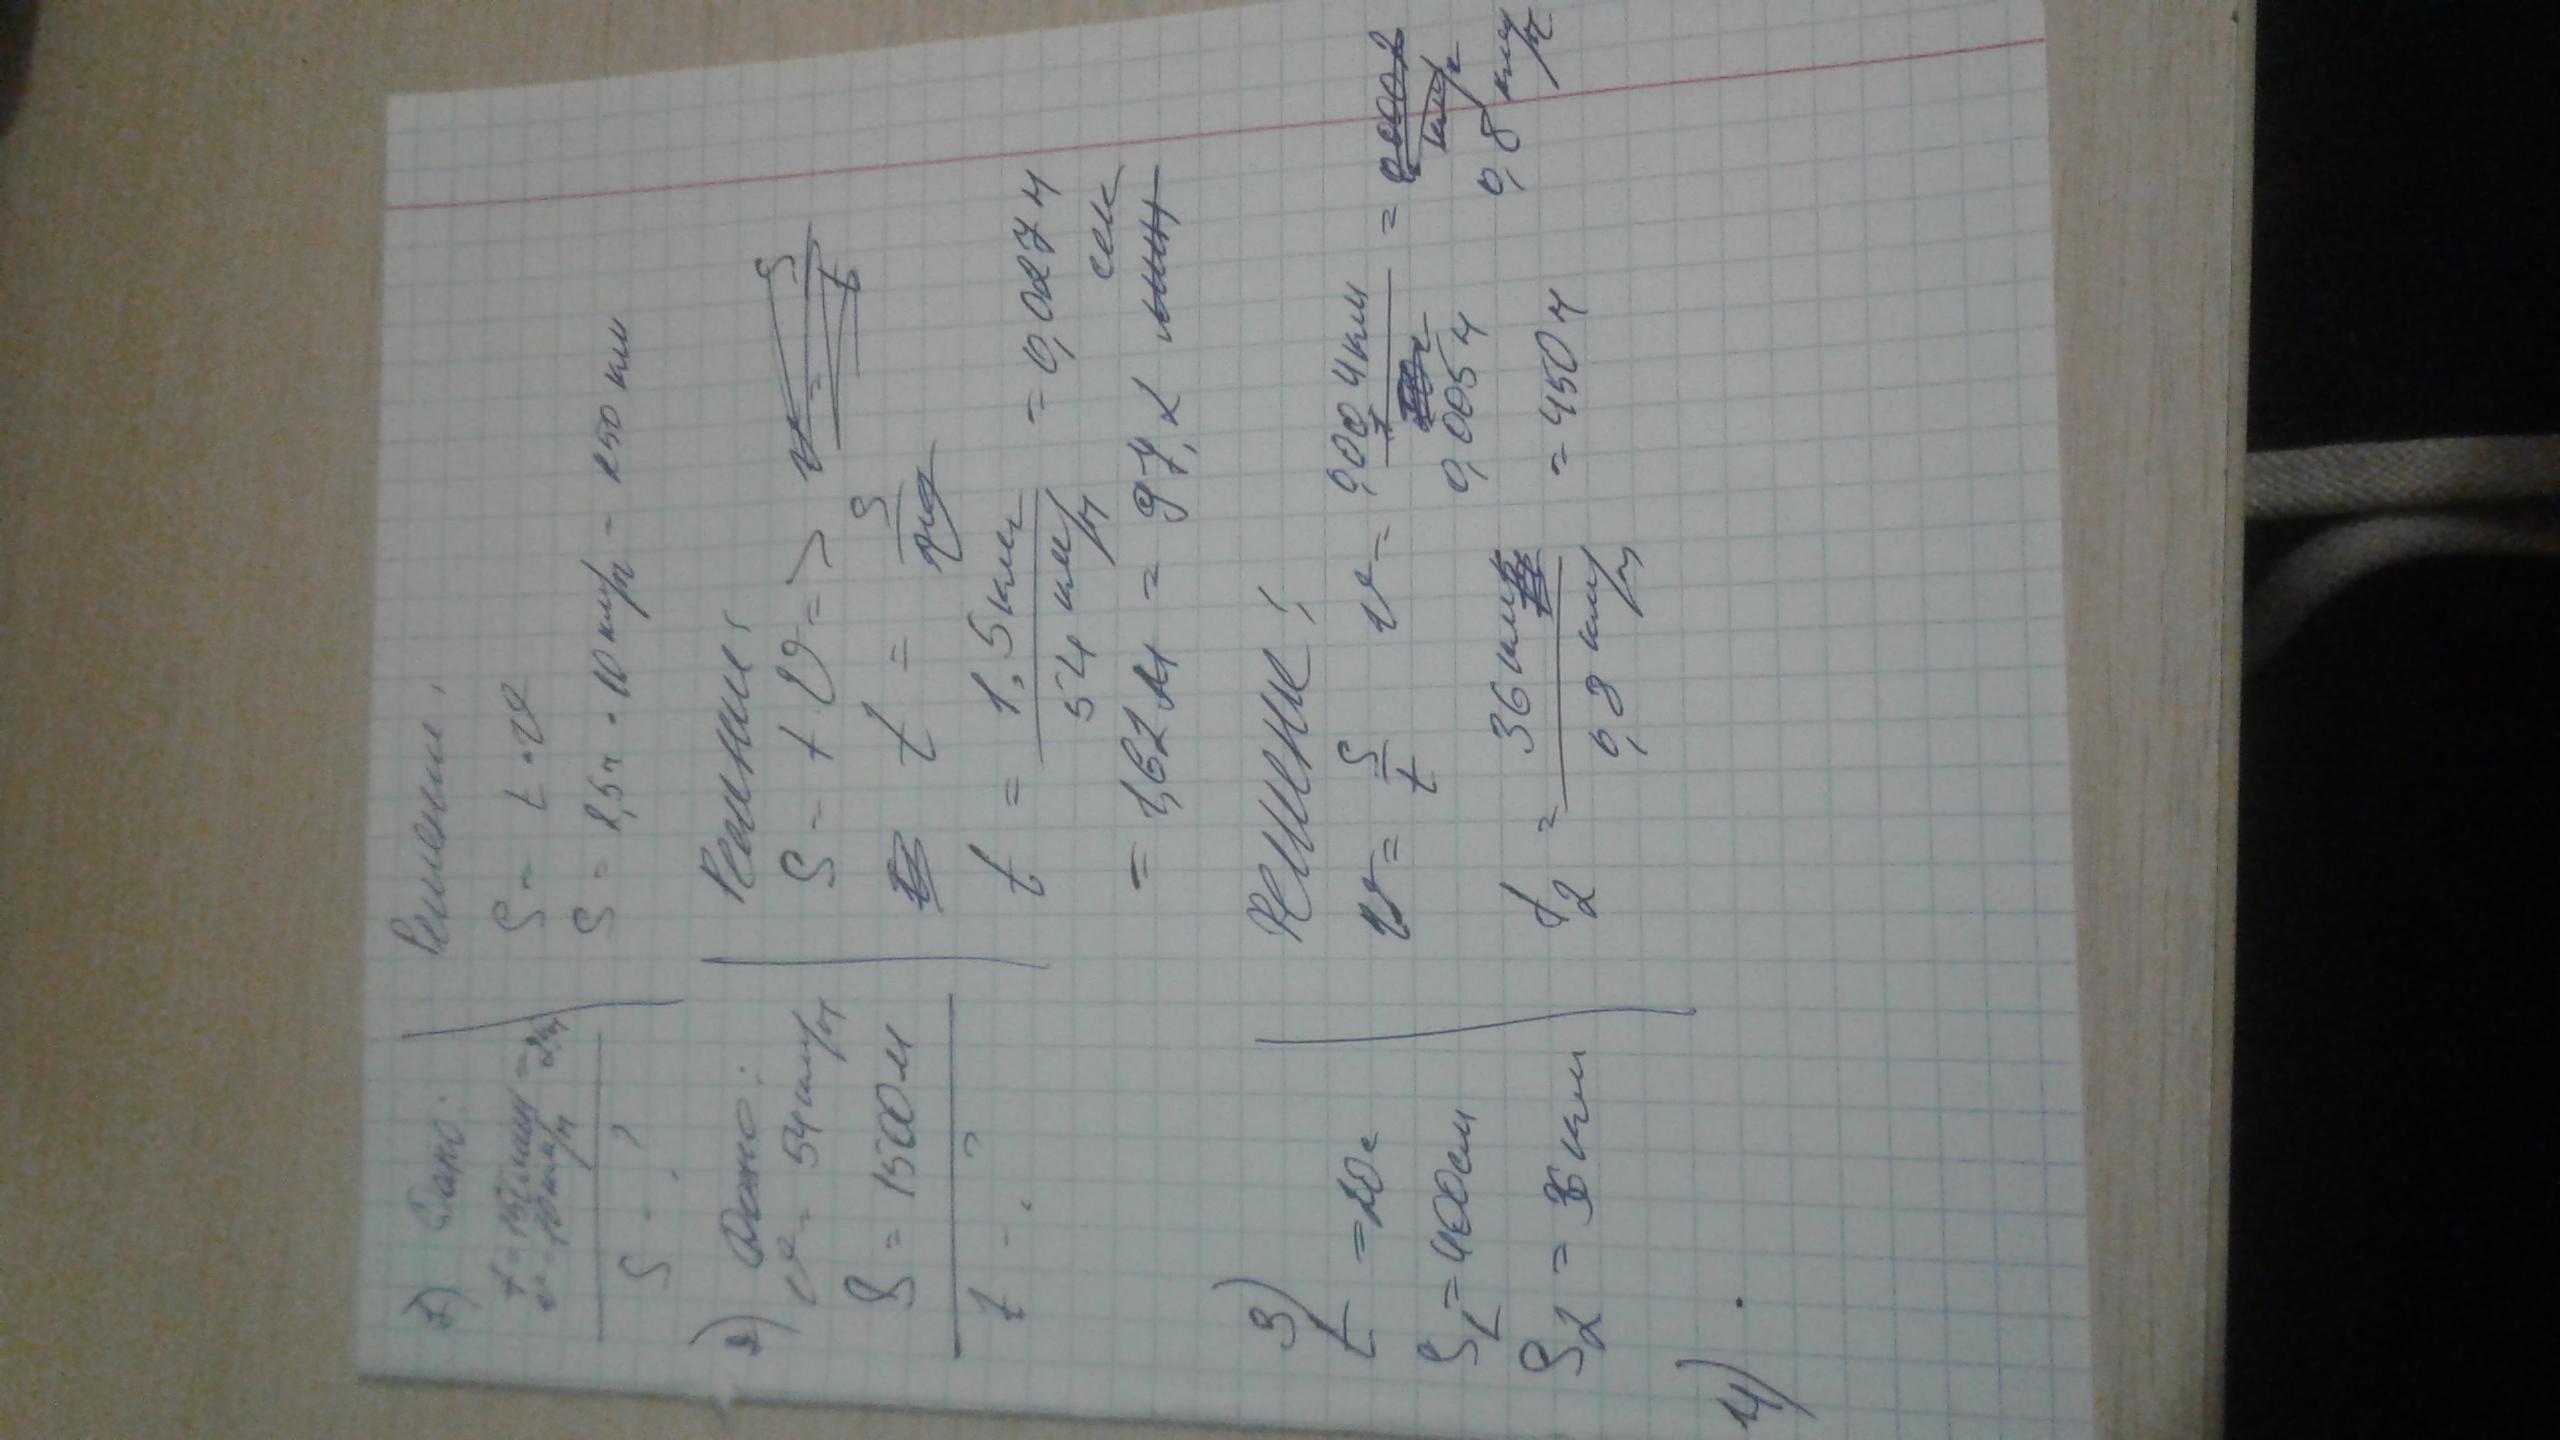 1) Дано:
t = 150 мин =
v = 10 км/ч
S - ?
Решение:
S = t · v
S = 2,5ч · 10 км/ч = 250 км
2) Дано:
v = 54 км/ч
S = 1500 м
t - ?
Решение:
S = t · v => v = S/t
t = S/v
t = 1,5 км / 54 км/ч = 0,027 ч
= 1,62 м = 97,2 сек мин
3)
t = 20 с
S1 = 400 см
S2 = 36 км
Решение:
v = S/t v = 0,004 км / 0,005 ч = 0,0002 км/с 0,8 км/ч
t2 = 36 км / 0,8 км/ч = 450 ч
4)